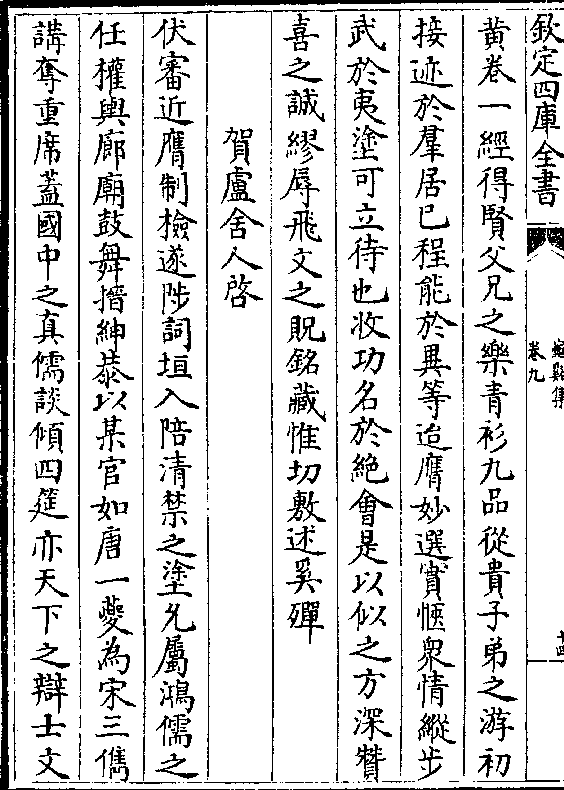 欽定四庫全書
卷九
黄卷一經得賢父兄之樂青衫九品從貴子弟之游初
接迹於羣居已程能於異等迨膺妙選實愜衆情縱步
武於夷塗可立待也收功名於絶㑹是以似之方深贊
喜之誠繆辱飛文之貺銘藏惟切敷述奚殫
賀盧舍人啓
伏審近膺制檢遂陟詞垣入陪清禁之塗允屬鴻儒之
任權輿廊廟鼓舞搢紳恭以某官如唐一夔為宋三儁
講奪重席蓋國中之真儒談傾四筵亦天下之辯士文